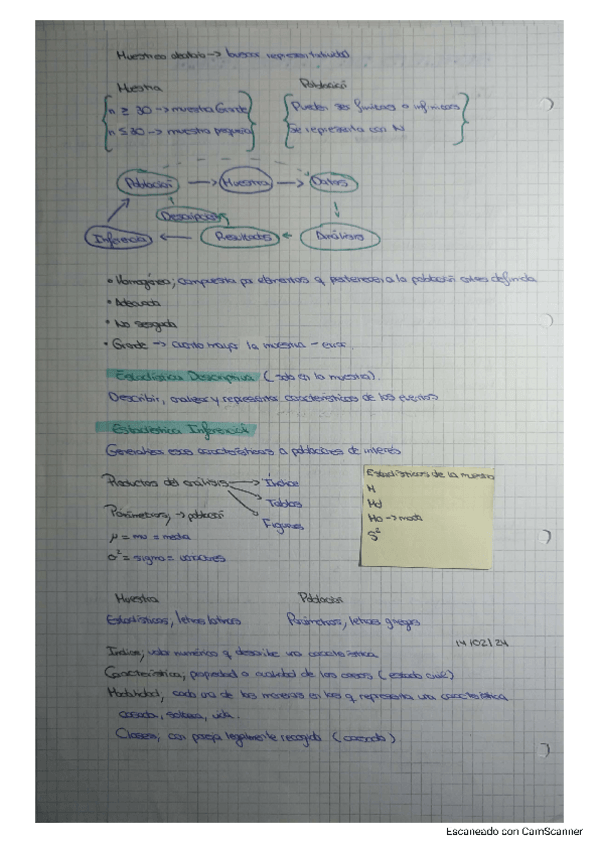 Muestreo aleatorio -> buscar representatividad
Muestra
Población
n ≥ 30 -> muestra Grande
n ≤ 30 -> muestra pequeña
Pueden ser finitas o infinitas
Se representa con N
Población -> Muestra -> Datos
Descripción
Inferencia <- Resultados <- Análisis
• Homogénea; compuesta por elementos q pertenecen a la población antes definida
• Adecuada
• No sesgada
• Grande -> cuanto mayor la muestra - error.
Estadística Descriptiva (solo en la muestra).
Describir, analizar y representar características de los eventos
Estadística Inferencial
Generalizar esas características a poblaciones de interés
Productos del análisis -> Índice
Tablas
Figuras
Parámetros, -> población
μ = mu = media
σ² = sigma = varianza
Estadísticos de la muestra
M
Md
Mo -> moda
S²
Muestra
Población
Estadísticos, letras latinas
Parámetros, letras griegas
14/02/24
Índice; valor numérico q describe una característica
Característica; propiedad o cualidad de los casos (estado civil)
Modalidad; cada una de las maneras en las q representa una característica
casada, soltera, vida.
Clases; con pareja legalmente recogida (casada)
Escaneado con CamScanner